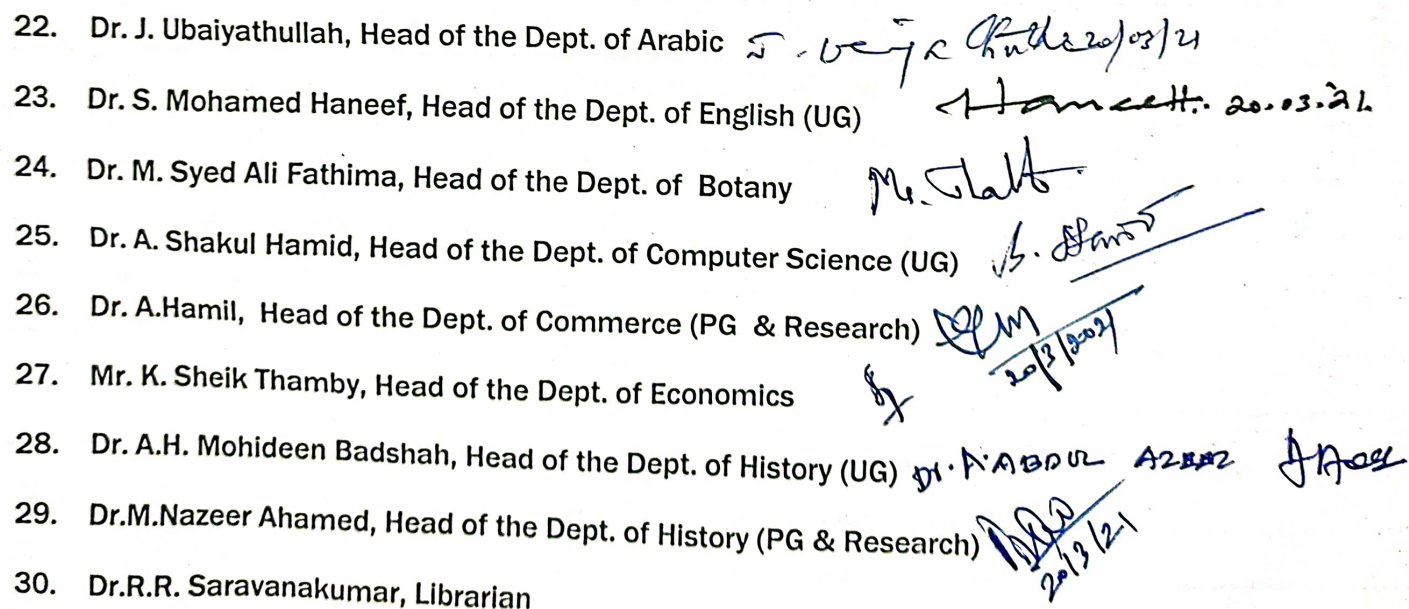 22. Dr. J. Ubaiyathullah, Head of the Dept. of Arabic 20/03/21
23. Dr. S. Mohamed Haneef, Head of the Dept. of English (UG) 20.03.21
24. Dr. M. Syed Ali Fathima, Head of the Dept. of Botany
25. Dr. A. Shakul Hamid, Head of the Dept. of Computer Science (UG)
26. Dr. A.Hamil, Head of the Dept. of Commerce (PG & Research) 20/3/2021
27. Mr. K. Sheik Thamby, Head of the Dept. of Economics
28. Dr. A.H. Mohideen Badshah, Head of the Dept. of History (UG) Dr. A. ABDUL
29. Dr.M.Nazeer Ahamed, Head of the Dept. of History (PG & Research) 20/3/21
30. Dr.R.R. Saravanakumar, Librarian